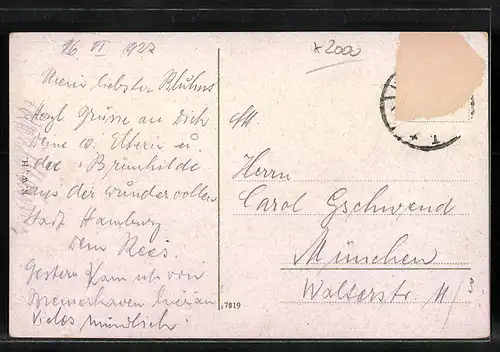 16 VI 1927
x2000
Mein liebster Bluhns
Herzl Grüsse an Dich
Deine w. Eltern u.
die Brünhilde
aus der wundervollen
Stadt Hamburg
Dein Rees.
Gestern kam ich von
Bremerhaven
Vieles mündlich.
Herrn
Carol Gschwend
München
Walterstr. 11/3
7819